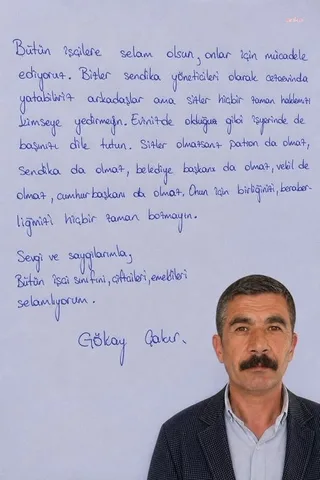 Bütün işçilere selam olsun, onlar için mücadele
ediyoruz. Bizler sendika yöneticileri olarak cezaevinde
yatabiliriz arkadaşlar ama sizler hiçbir zaman hakkınızı
kimseye yedirmeyin. Evinizde olduğu gibi işyerinde de
başınızı dik tutun. Sizler olmazsanız patron da olmaz,
sendika da olmaz, belediye başkanı da olmaz, vekil de
olmaz, cumhurbaşkanı da olmaz. Onun için birliğinizi, beraber-
liğinizi hiçbir zaman bozmayın.
Sevgi ve saygılarımla,
Bütün işçi sınıfını, çiftçileri, emeklileri
selamlıyorum.
Gökay Çakır.